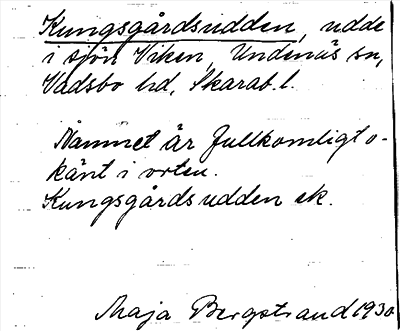 Kungsgårdsudden, udde
i sjön Viken, Undenäs sn,
Vadsbo hd, Skarab. l.
Namnet är fullkomligt o-
känt i orten.
Kungsgårdsudden ek.
Maja Bergstrand 1930.